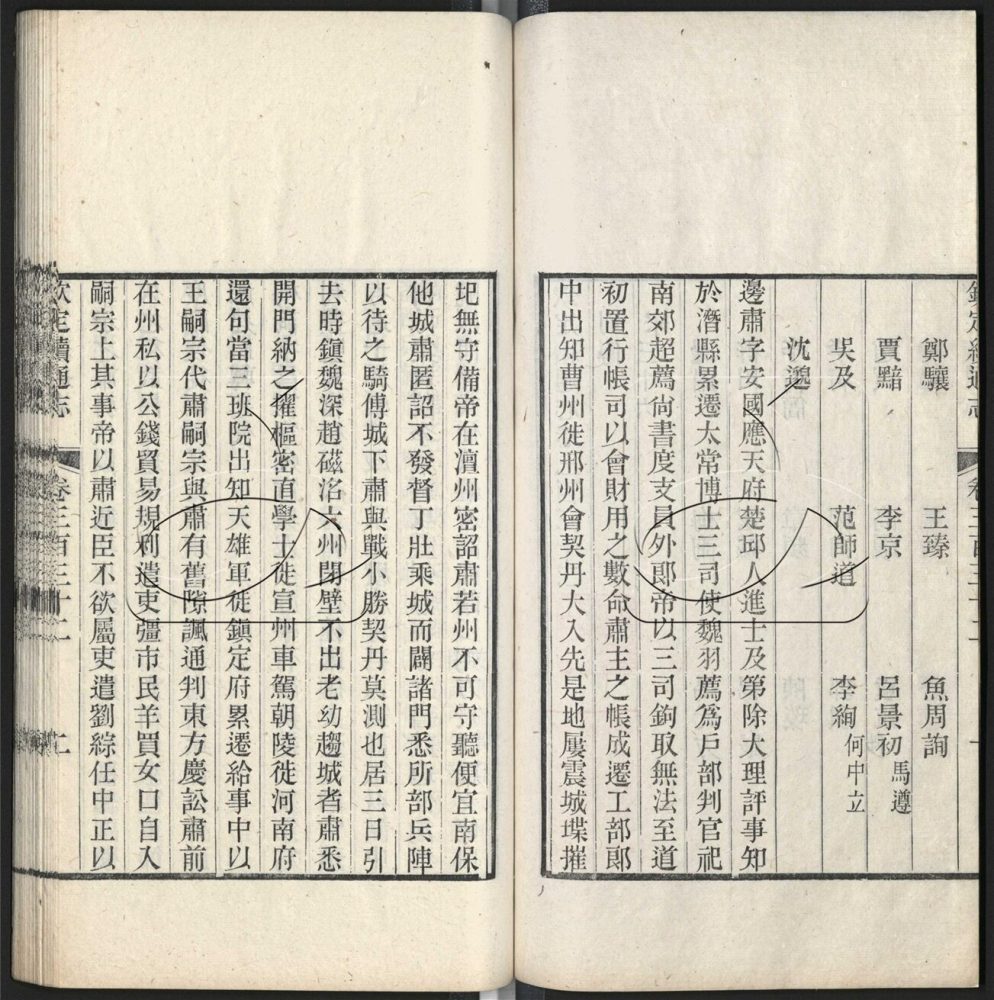 欽定續通志 卷三百三十二
鄭驤 王臻 魚周詢
賈黯 李京 呂景初 馬遵
吳及 范師道 李絢 何中立
沈邈
邊肅字安國應天府楚邱人進士及第除大理評事知
於潛縣累遷太常博士三司使魏羽薦為戶部判官祀
南郊超薦尚書度支員外郎帝以三司鉤取無法至道
初置行帳司以會財用之數命肅主之帳成遷工部郎
中出知曹州徙邢州會契丹大入先是地屢震城堞摧
圮無守備帝在澶州密詔肅若州不可守聽便宜南保
他城肅匿詔不發督丁壯乘城而闢諸門悉所部兵陣
以待之騎傅城下肅與戰小勝契丹莫測也居三日引
去時鎮魏深趙磁洺六州閉壁不出老幼趨城者肅悉
開門納之擢樞密直學士徙宣州車駕朝陵徙河南府
還句當三班院出知天雄軍徙鎮定府累遷給事中以
王嗣宗代肅嗣宗與肅有舊隙諷通判東方慶訟肅前
在州私以公錢貿易規利遣吏彊市民羊買女口自入
嗣宗上其事帝以肅近臣不欲屬吏遣劉綜任中正以
欽定續通志 卷三百三十二